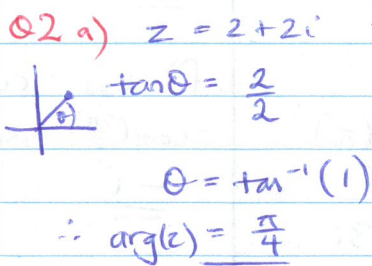 Q2 a) z = 2+2i
tanθ = 2/2
θ
θ = tan⁻¹(1)
∴ arg(z) = π/4